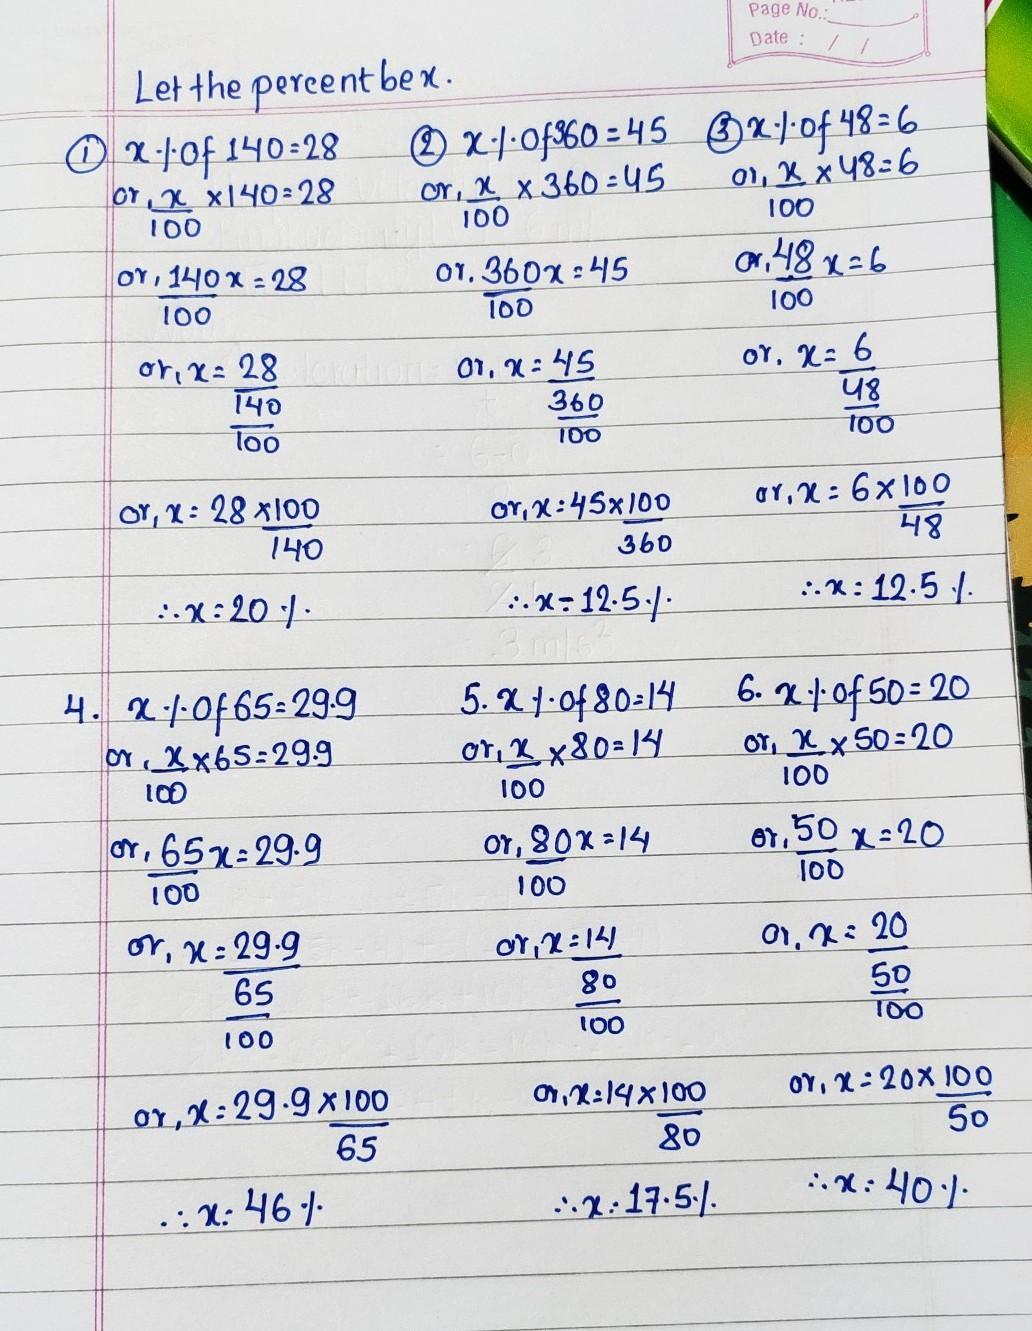 Page No.:
Date : / /
Let the percent be x.
① x % of 140 = 28
or, x/100 × 140 = 28
or, 140x/100 = 28
or, x = 28/140/100
or, x = 28 × 100/140
∴ x = 20 %
② x % of 360 = 45
or, x/100 × 360 = 45
or. 360x/100 = 45
or, x = 45/360/100
or, x = 45 × 100/360
∴ x = 12.5 %
③ x % of 48 = 6
or, x/100 × 48 = 6
or, 48/100 x = 6
or. x = 6/48/100
or, x = 6 × 100/48
∴ x = 12.5 %
4. x % of 65 = 29.9
or, x/100 × 65 = 29.9
or, 65/100 x = 29.9
or, x = 29.9/65/100
or, x = 29.9 × 100/65
∴ x = 46 %
5. x % of 80 = 14
or, x/100 × 80 = 14
or, 80x/100 = 14
or, x = 14/80/100
or, x = 14 × 100/80
∴ x = 17.5 %
6. x % of 50 = 20
or, x/100 × 50 = 20
or, 50/100 x = 20
or, x = 20/50/100
or, x = 20 × 100/50
∴ x = 40 %